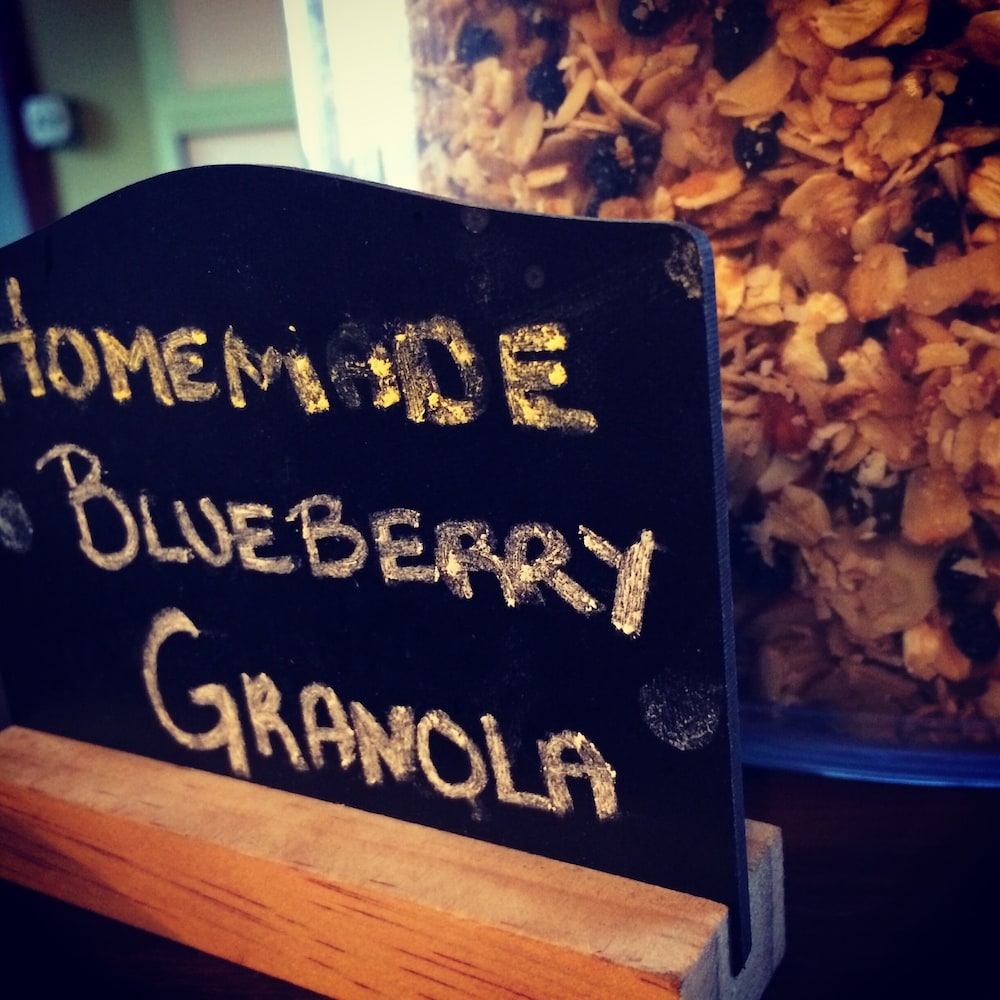 HOMEMADE
BLUEBERRY
GRANOLA